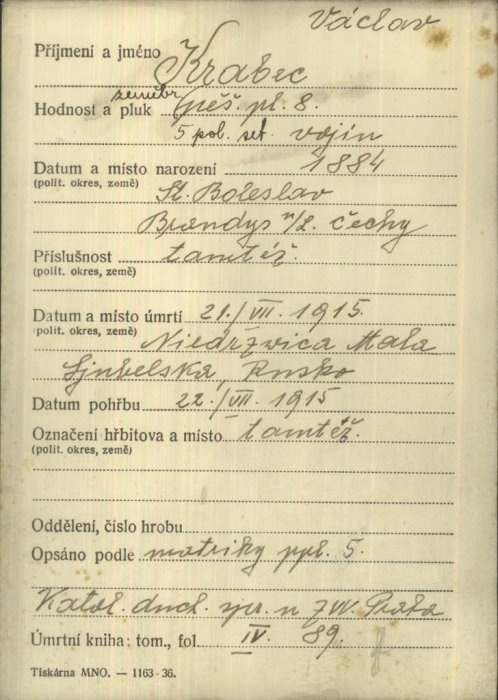 Václav
Příjmení a jméno Krabec
zeměbr.
Hodnost a pluk pěš. pl. 8.
5 pol. set. vojín
Datum a místo narození 1884
(polit. okres, země) St. Boleslav
Brandys n/L. Čechy
Příslušnost tamtéž.
(polit. okres, země)
Datum a místo úmrtí 21./VII. 1915.
(polit. okres, země) Niedrzwica Mala
Ljubelska, Rusko
Datum pohřbu 22./VII. 1915
Označení hřbitova a místo tamtéž.
(polit. okres, země)
Oddělení, číslo hrobu
Opsáno podle matriky ppl. 5.
Katol. duch. spr. u ZVV. Praha
Úmrtní kniha: tom., fol. IV. 89.
Tiskárna MNO. — 1163-36.